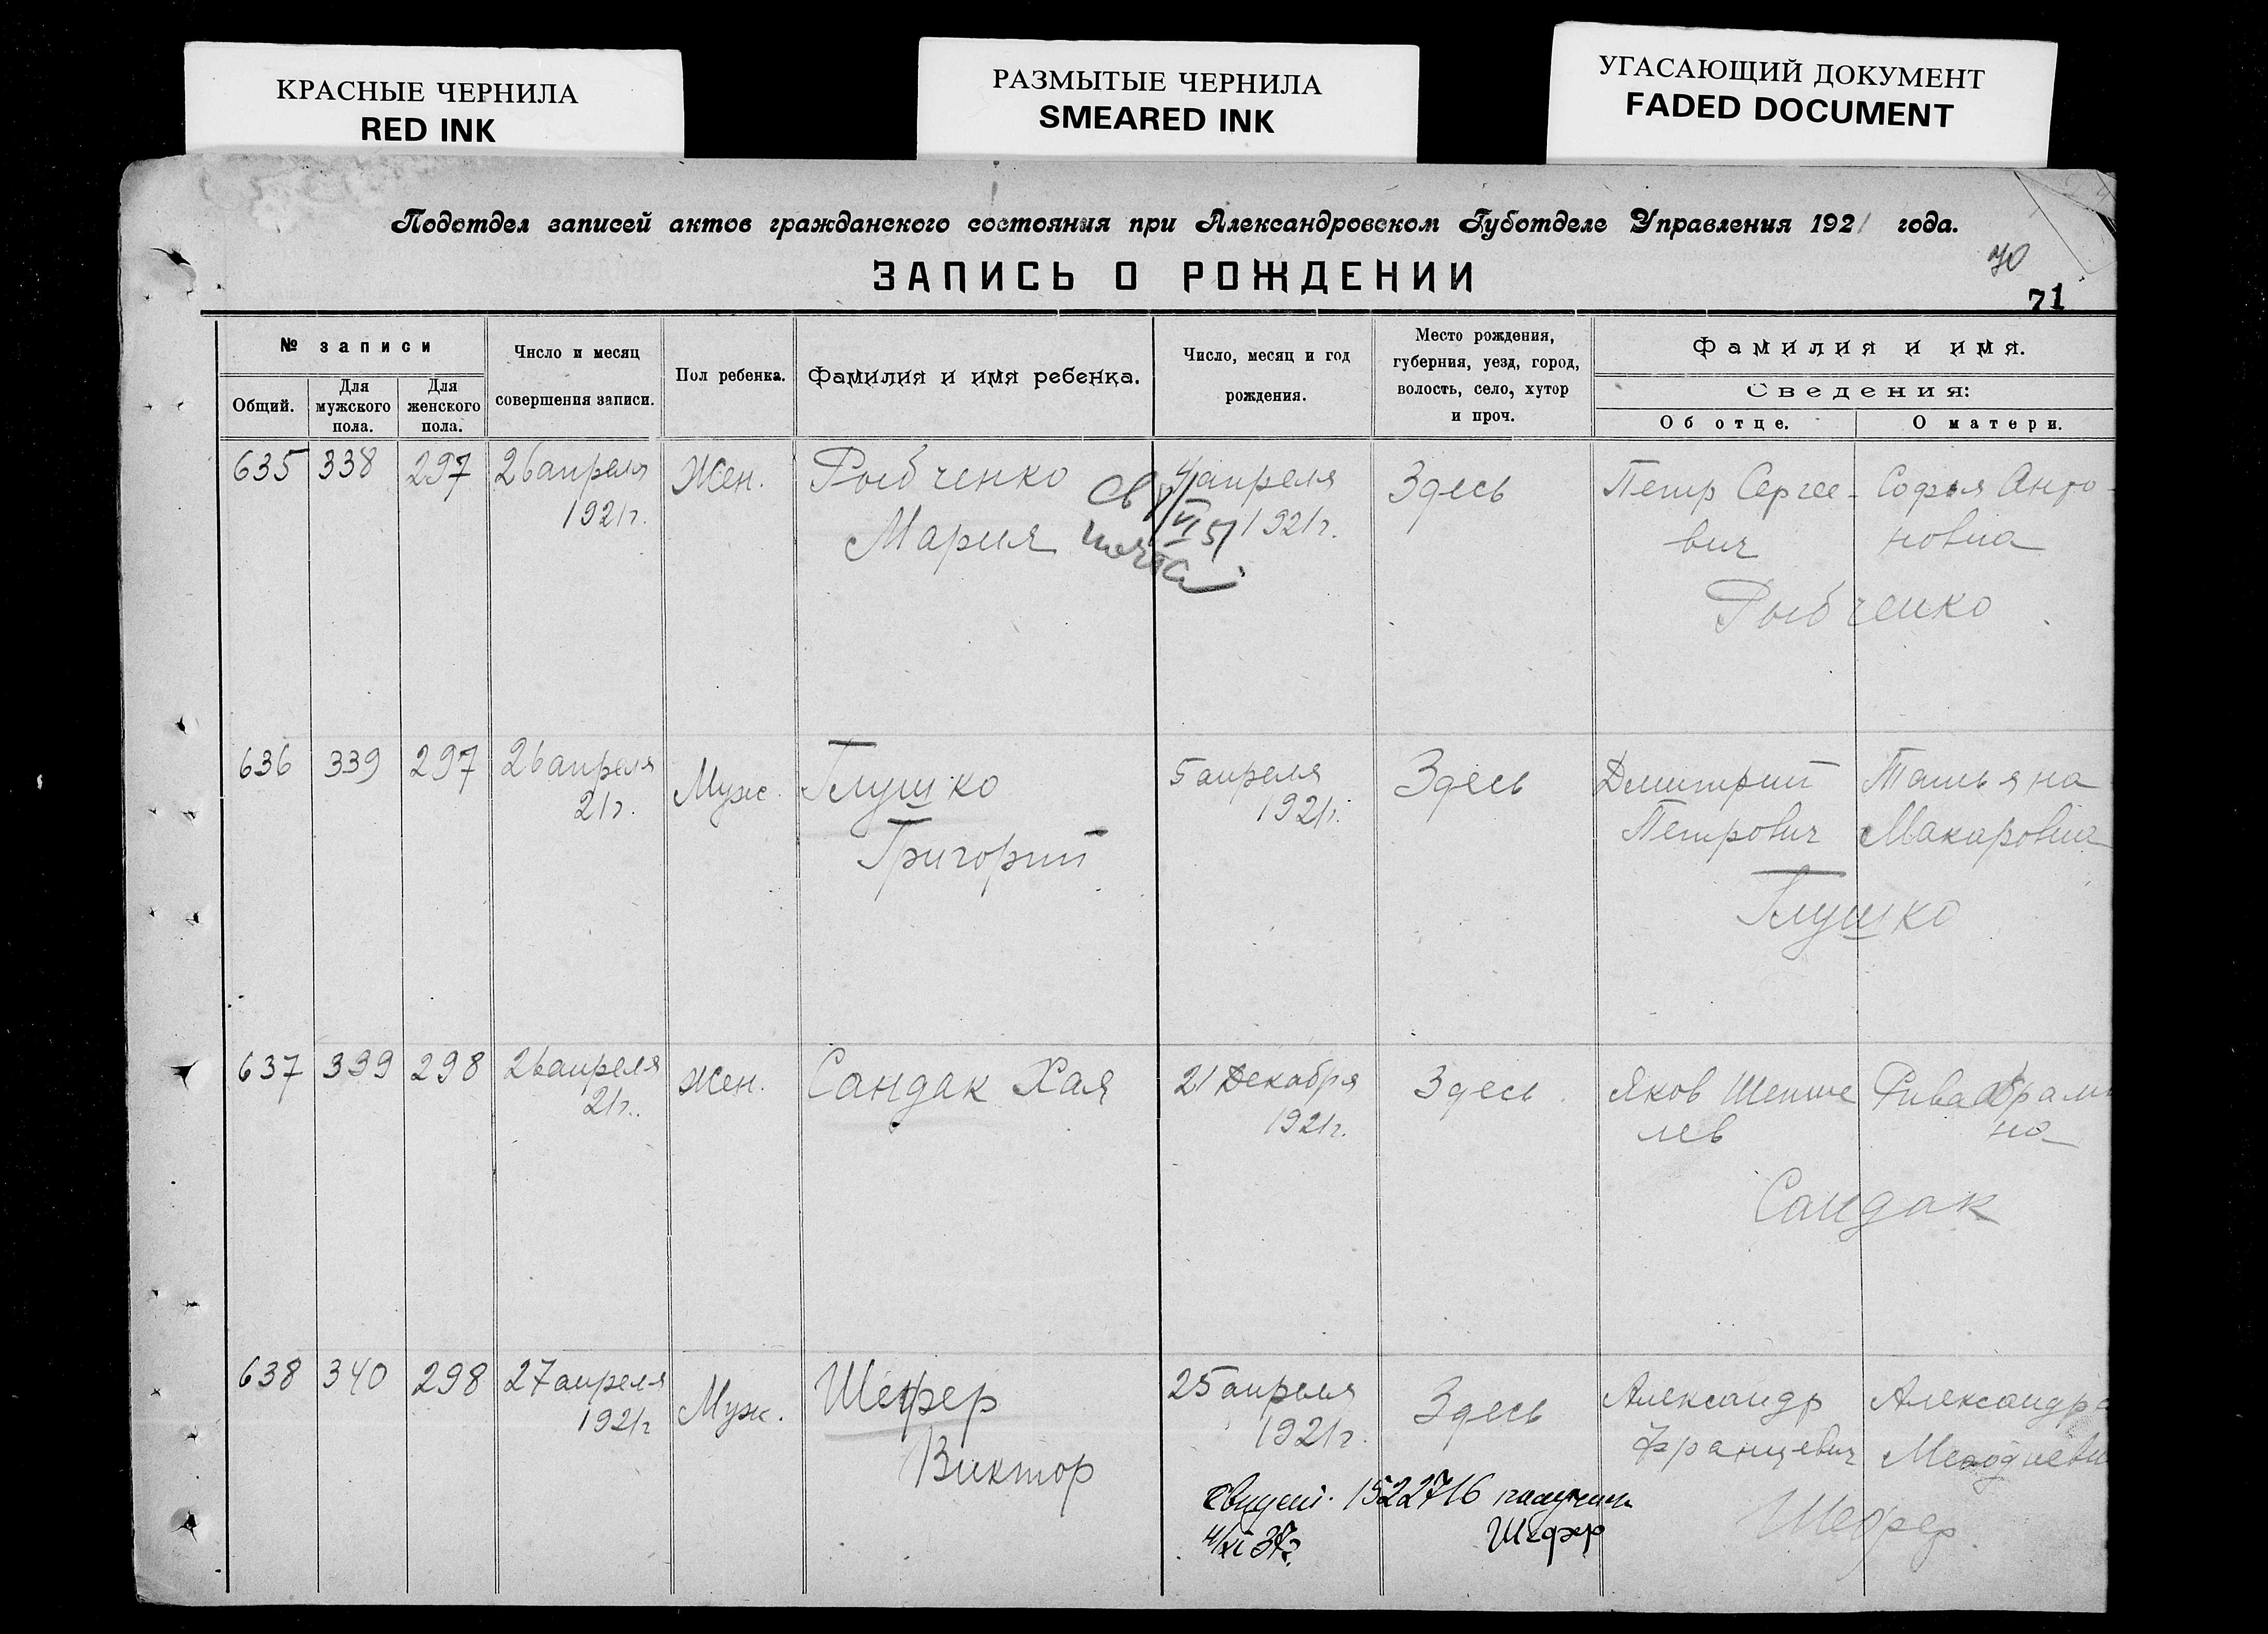 КРАСНЫЕ ЧЕРНИЛА
RED INK
РАЗМЫТЫЕ ЧЕРНИЛА
SMEARED INK
УГАСАЮЩИЙ ДОКУМЕНТ
FADED DOCUMENT
Подотдел записей актов гражданского состояния при Александровском Губотделе Управления 1921 года.
ЗАПИСЬ О РОЖДЕНИИ
70
71
№ записи
Общий.
Для мужского пола.
Для женского пола.
Число и месяц
совершения записи.
Пол ребенка.
Фамилия и имя ребенка.
Число, месяц и год
рождения.
Место рождения,
губерния, уезд, город,
волость, село, хутор
и проч.
Фамилия и имя.
Сведения:
Об отце.
О матери.
635 338 297 26 апреля Жен. Рыбченко 4 апреля Здесь Петр Сергее- Софья Анто-
1921г. Мария 1921г. вич новна
Рыбченко
636 339 297 26 апреля Муж. Глушко 5 апреля Здесь Дмитрий Татьяна
21г. Григорий 1921г. Петрович Макаровна
Глушко
637 339 298 26 апреля Жен. Сандак Хая 21 Декабря Здесь Яков Шепше Рива Абрам
21г. 1921г. лев на
Сандак
638 340 298 27 апреля Муж. Шефер 25 апреля Здесь Александр Александра
1921г Виктор 1921г. Францевич
свидет. 1522716 получил
4/XI 37г. Шефер
Шефер